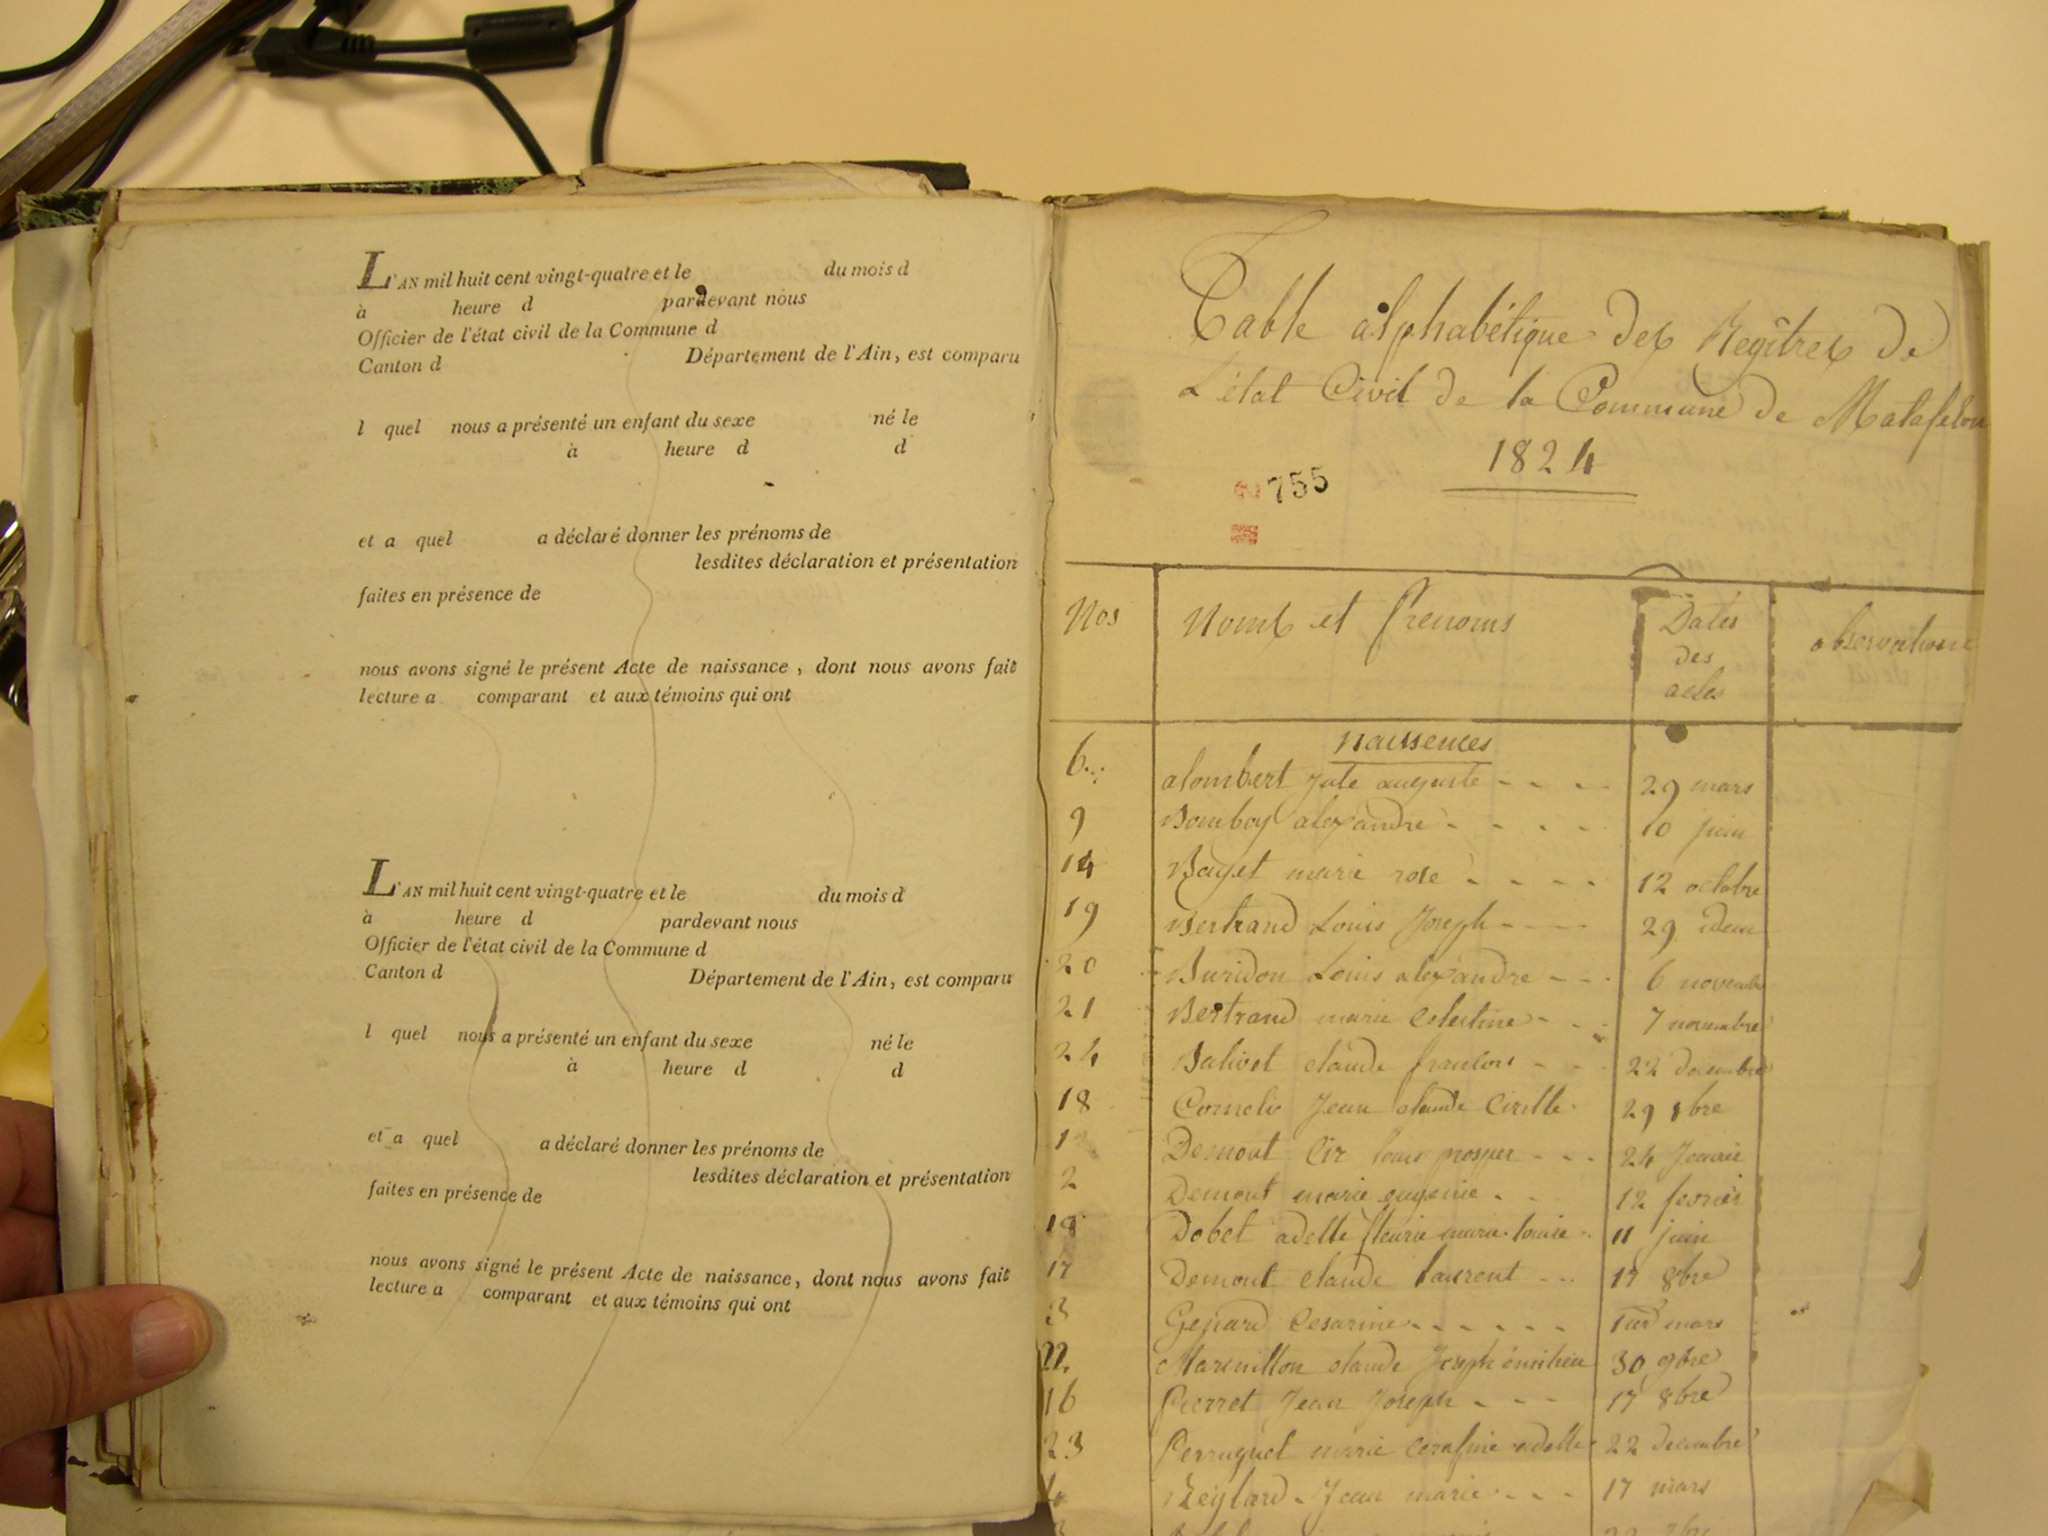 L'AN mil huit cent vingt-quatre et le du mois d
à heure d pardevant nous
Officier de l'état civil de la Commune d
Canton d Département de l'Ain, est comparu
l quel nous a présenté un enfant du sexe né le
à heure d d
et a quel a déclaré donner les prénoms de
lesdites déclaration et présentation
faites en présence de
nous avons signé le présent Acte de naissance, dont nous avons fait
lecture a comparant et aux témoins qui ont
L'AN mil huit cent vingt-quatre et le du mois d
à heure d pardevant nous
Officier de l'état civil de la Commune d
Canton d Département de l'Ain, est comparu
l quel nous a présenté un enfant du sexe né le
à heure d d
et a quel a déclaré donner les prénoms de
lesdites déclaration et présentation
faites en présence de
nous avons signé le présent Acte de naissance, dont nous avons fait
lecture a comparant et aux témoins qui ont
Table alphabétique des Regîtres de
L'état Civil de la Commune de Matafelon
1824
755
Nos Noms et Prenoms Dates des actes observations
Naissences
6 alombert Jule auguste 29 mars
9 Bomboy alexandre 10 juin
14 marie rose 12 octobre
19 Bertrand Louis Joseph 29 idem
20 Buridon Louis alexandre 6 novembre
21 Bertrand marie Celestine 7 novembre
24 Balivet claude francois 22 decembre
18 Jean claude 29 8bre
1 Demont Cir louis prosper 24 Janvier
2 Demont marie eugenie 12 fevrier
18 Dobet adelle fleurie marie louise 11 juin
17 Demont claude laurent 17 8bre
3 Cesarine 1er mars
22 claude Joseph 30 9bre
16 Pierret Jean Joseph 17 8bre
23 Perruquet marie adelle 22 decembre
4 Reylard Jean marie 17 mars